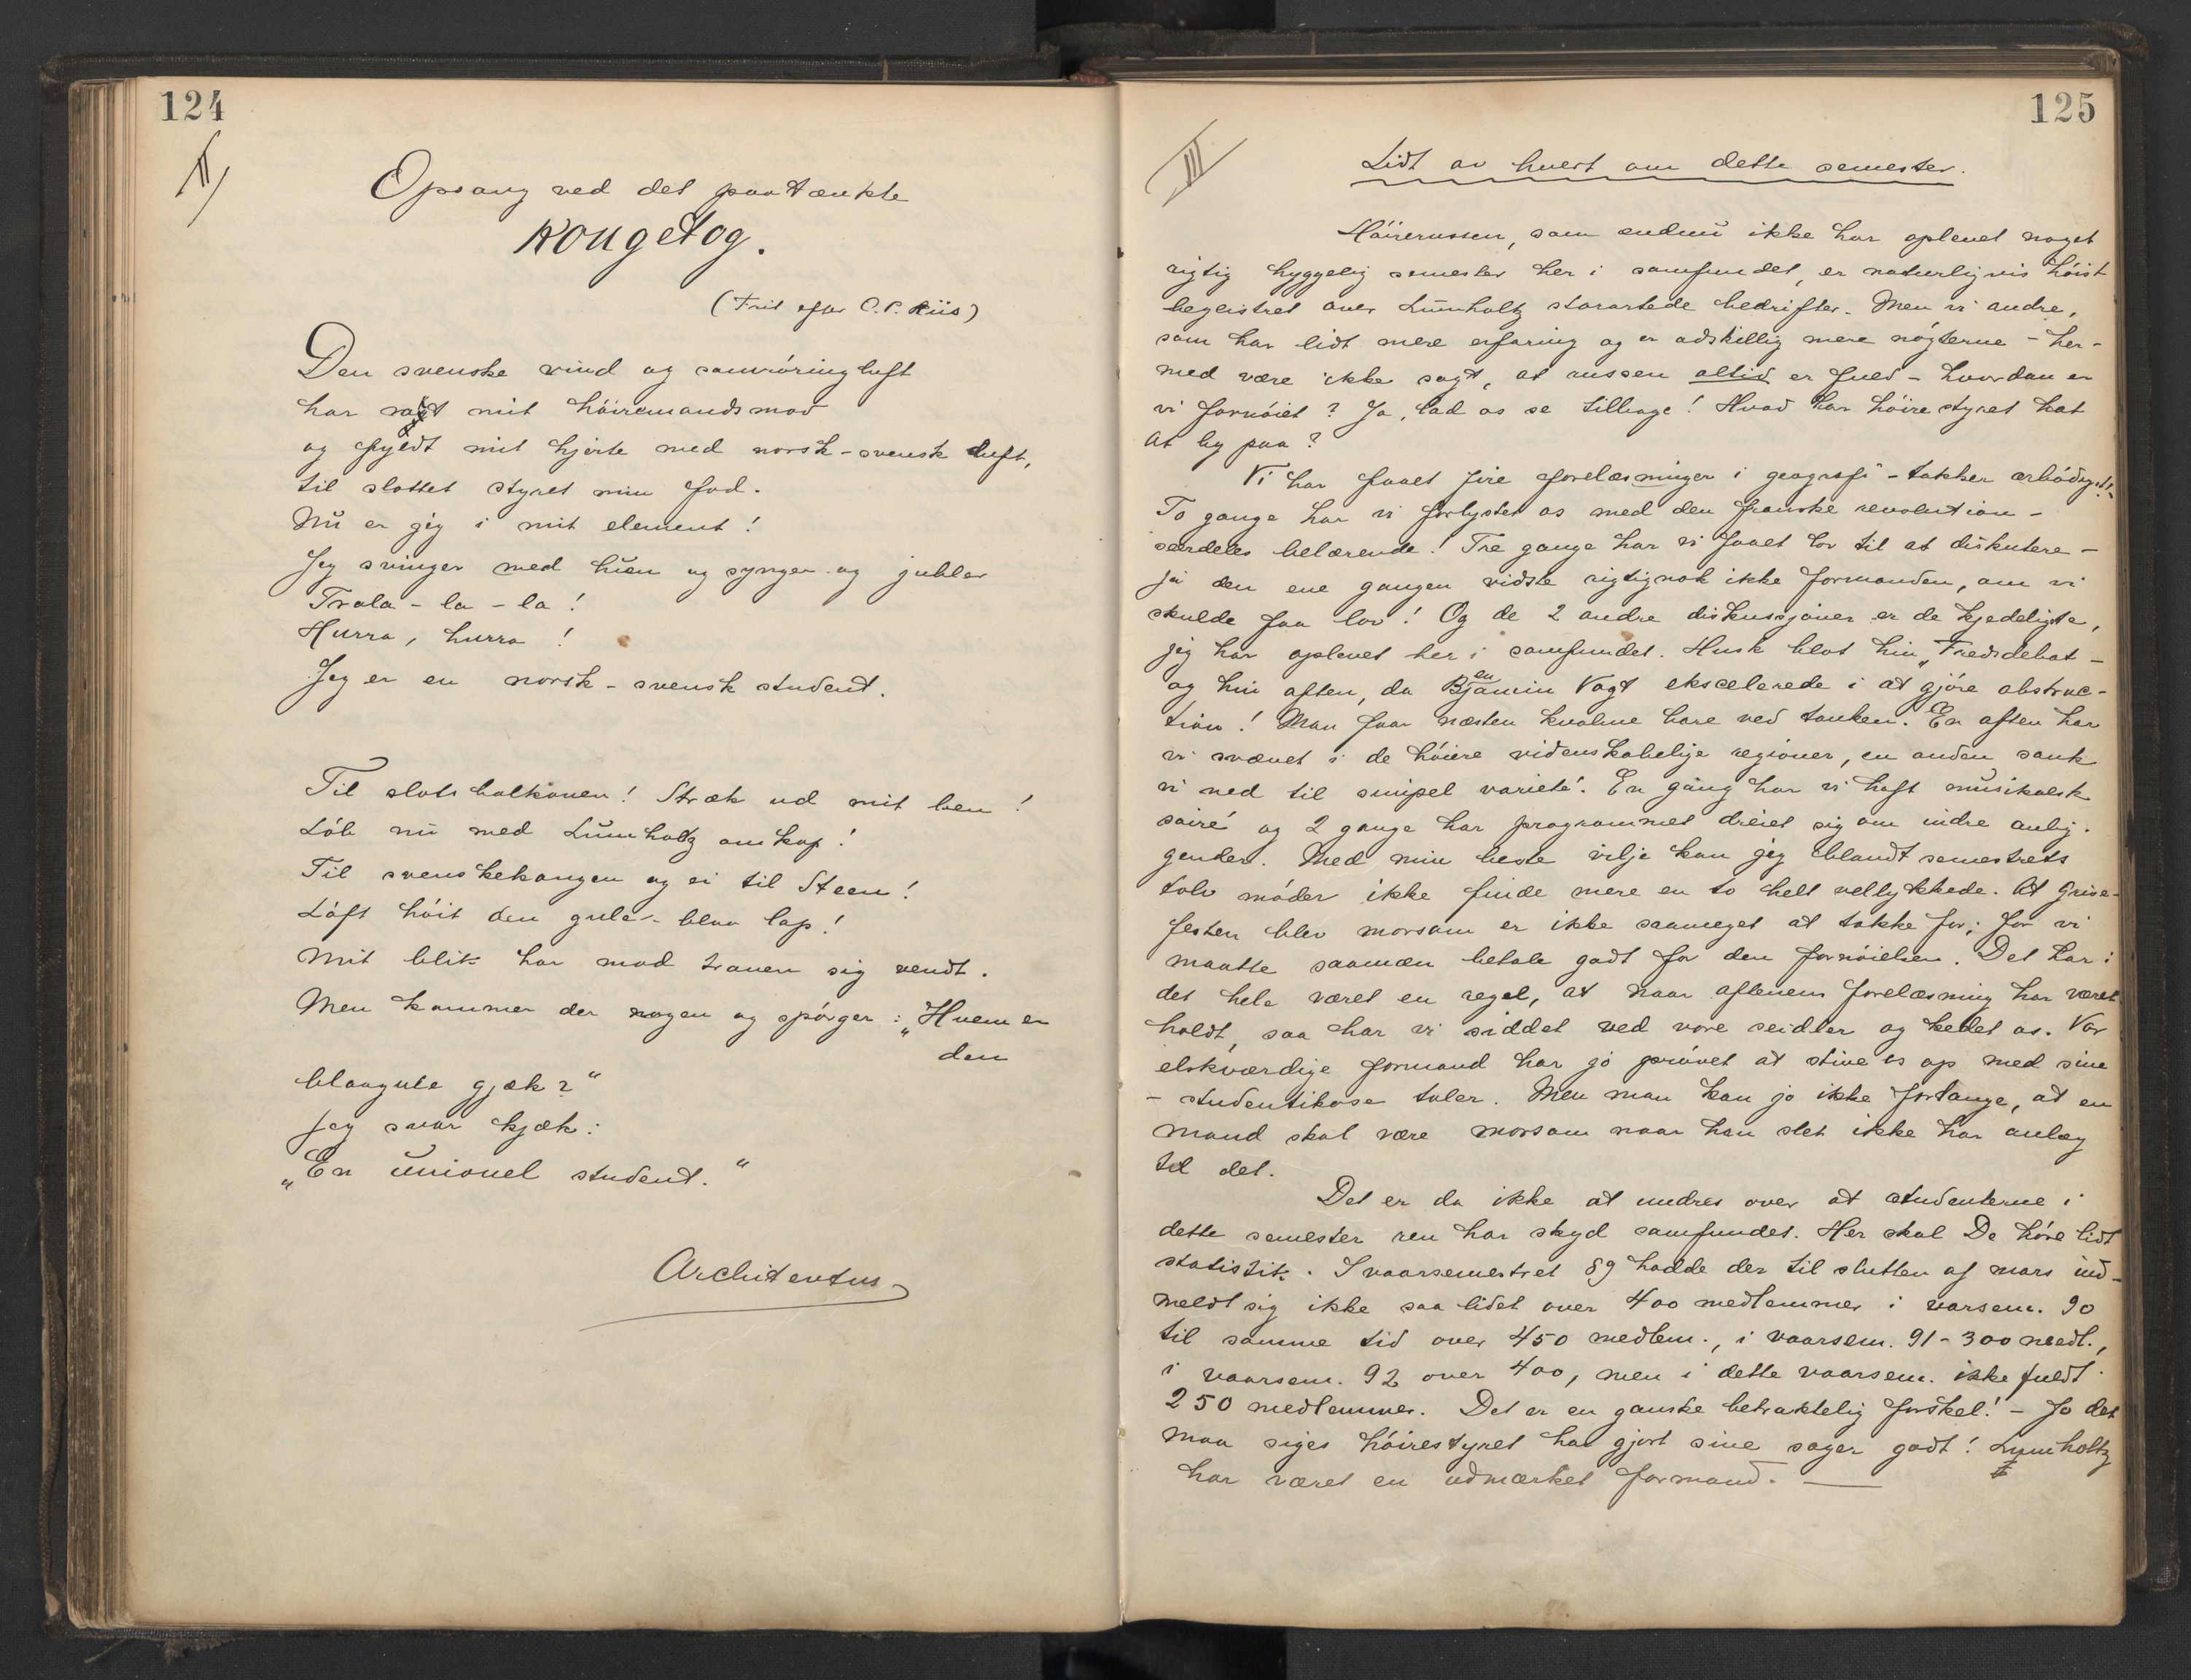 124
II
Opsang ved det paatænkte
Kongetog.
(Frit efter C.P. Riis)
Den svenske vind og samröringluft
har vakt mit höiremandsmod
og fyldt mit hjerte med norsk-svensk duft,
til slottet styret min fod.
Nu er jeg i mit element!
Jeg svinger med huen og synger og jubler
Trala-la-la!
Hurra, hurra!
Jeg er en norsk-svensk student.
Til slotsbalkonen! Stræk ud mit ben!
Löb nu med Lumholtz omkap!
Til svenskekongen og ei til Steen!
Löft höit den gule-blaa lap!
Mit blik har mod tronen sig vendt.
Men kommer der nogen og spörger: „Hvem er
den
blaagule gjæk?“
Jeg svar kjæk:
„En unionel student.“
Architectus
125
III
Lidt av hvert om dette semester.
Höirerussen, som endnu ikke har oplevet noget
rigtig hyggelig semester her i samfundet, er naturligvis höist
begeistret over Lumholtz storartede bedrifter. Men vi andre,
som har lidt mere erfaring og er adskillig mere nögterne - her-
med være ikke sagt, at russen altid er fuld - hvordan er
vi fornöiet? Ja, lad os se tilbage! Hvad har höirestyret hat
at by paa?
Vi har faaet fire forelæsninger i geografi - takker ærbödigst!
To gange har vi forlystet os med den franske revolution -
særdeles belærende! Tre gange har vi faaet lov til at diskutere -
ja den ene gangen vidste rigtignok ikke formanden, om vi
skulde faa lov! Og de 2 andre diskussjoner er de kjedeligste,
jeg har oplevet her i samfundet. Husk blot hin „Fredsdebat -
og hin aften, da Bjamin en Vogt ekscelerede i at gjöre obstruc-
tion! Man faar næsten kvalme bare ved tanken. En aften har
vi svævet i de höiere videnskabelige regioner, en anden sank
vi ned til simpel varieté. En gang har vi haft musikalsk
soiré og 2 gange har programmet dreiet sig om indre anlig-
gender. Med min beste vilje kan jeg blandt semestrets
tolv möder ikke finde mere en to helt vellykkede. At Grise-
festen blev morsom er ikke saameget at takke for; for vi
maatte saamæn betale godt for den fornöielsen. Det har i
det hele været en regel, at naar aftenens forelæsning har været
holdt, saa har vi siddet ved vore seidler og kedet os. Vor
elskværdige formand har jo prövet at stive os op med sine
- studentikose taler. Men man kan jo ikke forlange, at en
mand skal være morsom naar han slet ikke har anlæg
til det.
Det er da ikke at undres over at studenterne i
dette semester ren har skyd samfundet. Her skal De höre lidt
statistik. I vaarsemestret 89 hadde der til slutten af mars ind-
meldt sig ikke saa lidet over 400 medlemmer i vaarsem. 90
til samme tid over 450 medlem., i vaarsem. 91 - 300 medl.,
i vaarsem. 92 over 400, men i dette vaarsem. ikke fuldt
250 medlemmer. Det er en ganske betraktelig forskel! - Jo det
maa siges höirestyret har gjort sine sager godt! Lumholtz
har været en udmærket formand. —